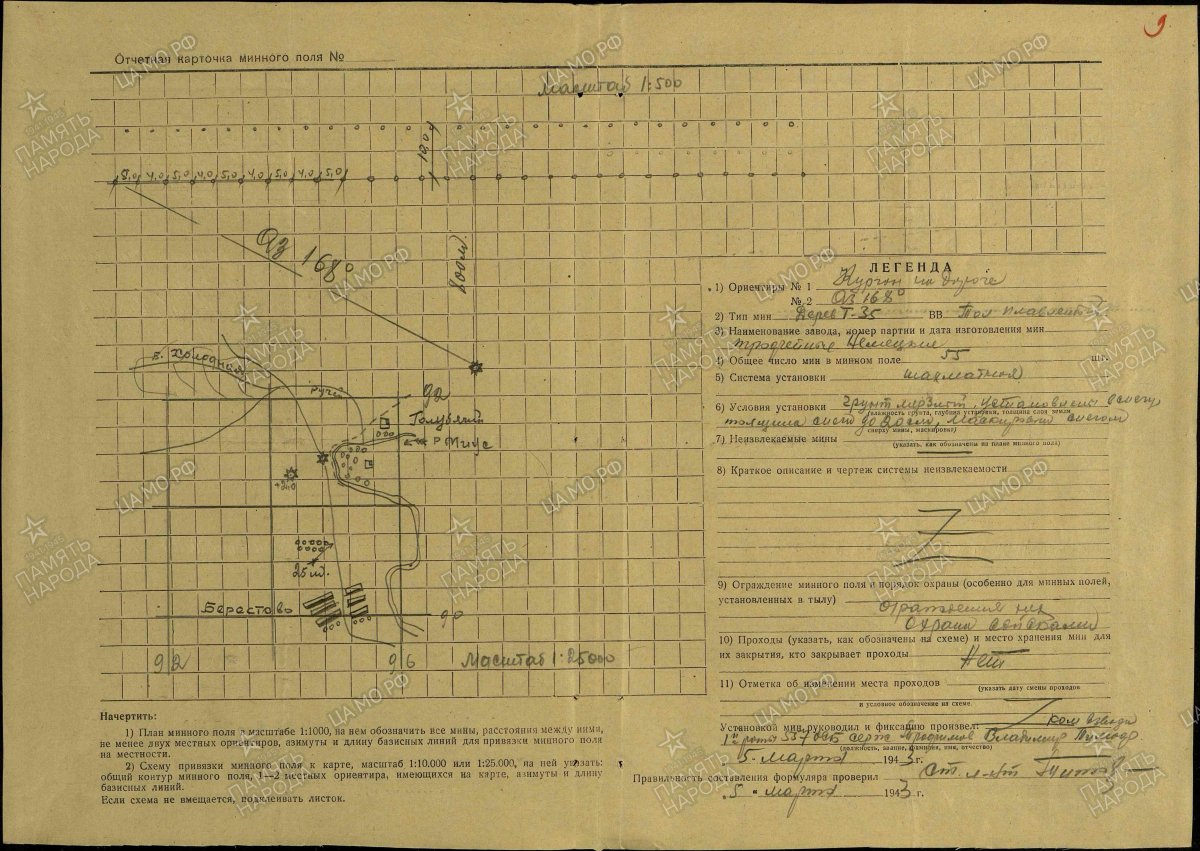 9
Отчетная карточка минного поля №
Масштаб 1:500
10,0
5,0 4,0 5,0 4,0 5,0 4,0 5,0 4,0 5,0
Аз 168°
800 м
б. Холодная
ручей
92
Голубячий
Р Миус
25 м.
Берестово
90
92
96
Масштаб 1:25000
Начертить:
1) План минного поля в масштабе 1:1000, на нем обозначить все мины, расстояния между ними, не менее двух местных ориентиров, азимуты и длину базисных линий для привязки минного поля
на местности.
2) Схему привязки минного поля к карте, масштаб 1:10.000 или 1:25.000, на ней указать:
общий контур минного поля, 1—2 местных ориентира, имеющихся на карте, азимуты и длину
базисных линий.
Если схема не вмещается, подклеивать листок.
ЛЕГЕНДА
1) Ориентиры № 1 Курган на дороге
№ 2 Аз 168°
2) Тип мин Дерев Т-35 ВВ Тол плавленый
3) Наименование завода, номер партии и дата изготовления мин
трофейные Немецкие
4) Общее число мин в минном поле 55 шт.
5) Система установки шахматная
6) Условия установки грунт мерзлый, установлены в снегу,
(влажность грунта, глубина установки, толщина слоя земли
толщина снега до 20 см, Маскированы снегом
сверху мины, маскировка)
7) Неизвлекаемые мины
(указать, как обозначены на плане минного поля)
8) Краткое описание и чертеж системы неизвлекаемости
9) Ограждение минного поля и порядок охраны (особенно для минных полей,
установленных в тылу)
ограждения нет
охрана
10) Проходы (указать, как обозначены на схеме) и место хранения мин для
их закрытия, кто закрывает проходы Нет
11) Отметка об изменении места проходов
(указать дату смены проходов
и условное обозначение на схеме
Установкой мин руководил и фиксацию произвел: ком взвода
1й роты серж Трофимов Владимир
(должность, звание, фамилия, имя, отчество)
„5“ Марта 1943 г.
Правильность составления формуляра проверил Ст. л-нт
„5“ марта 1943 г.
ПАМЯТЬ
НАРОДА
ЦАМО.РФ